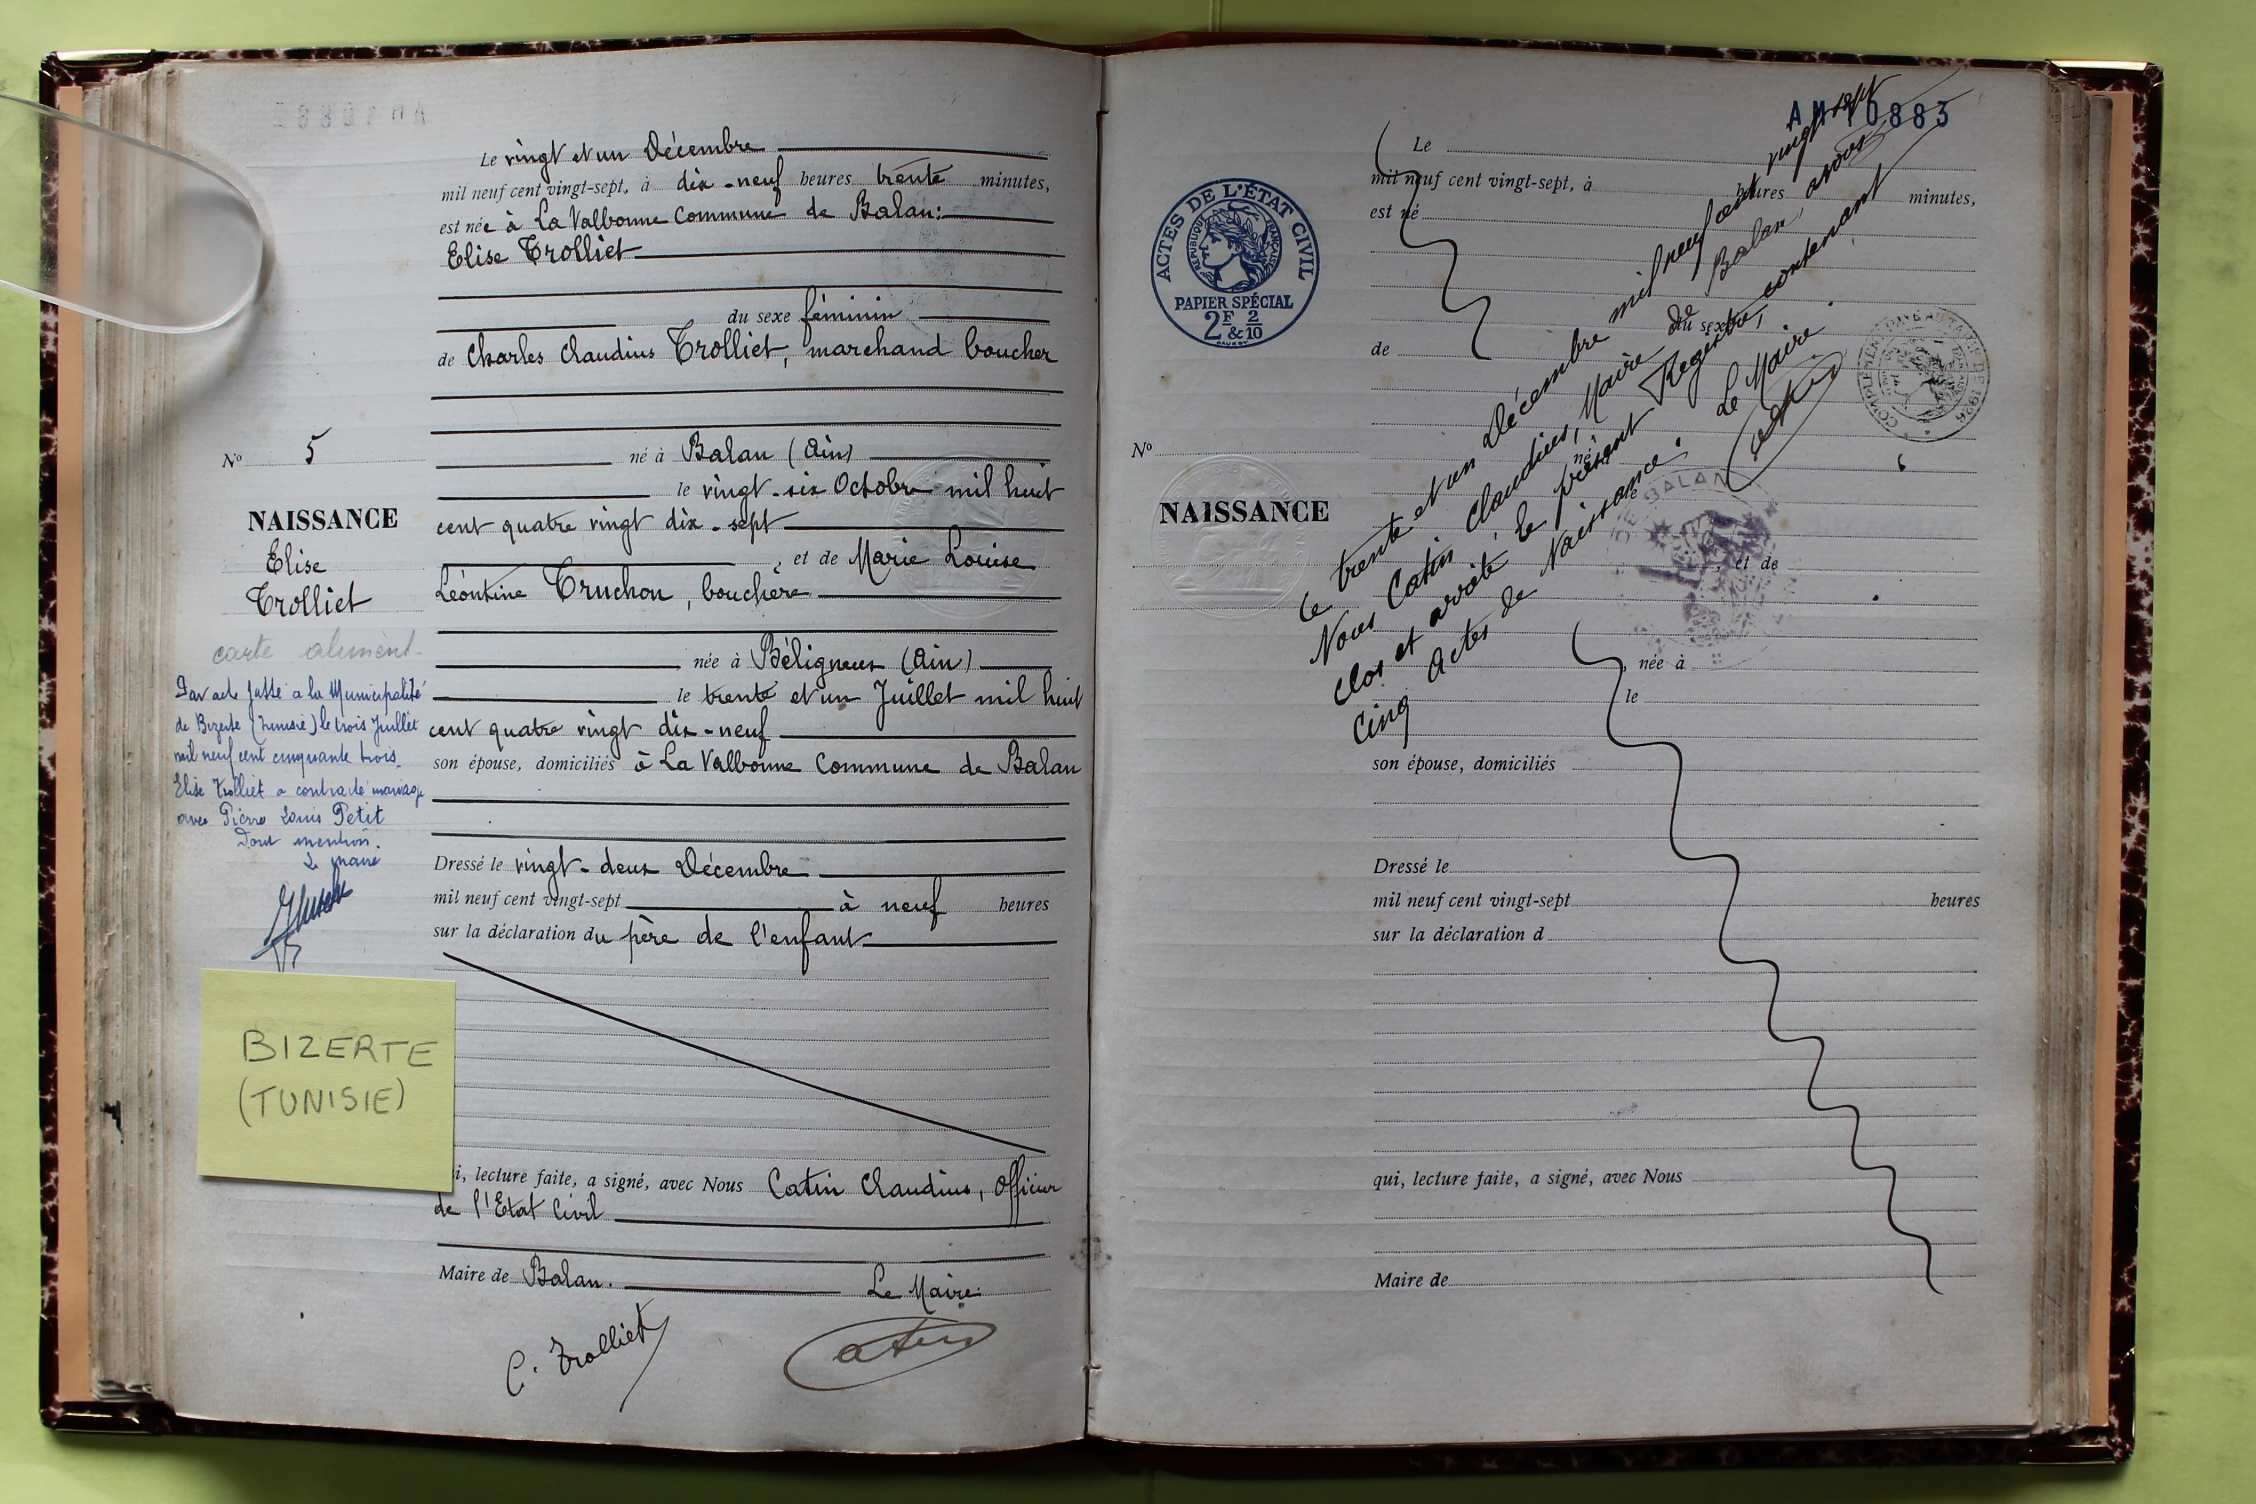 Le vingt et un Décembre
mil neuf cent vingt-sept, à dix-neuf heures trente minutes,
est née à La Valbonne Commune de Balan:
Elise Trolliet
du sexe féminin
de Charles Claudius Trolliet, marchand boucher
né à Balan (Ain)
le vingt-six Octobre mil huit
cent quatre vingt dix-sept
, et de Marie Louise
Léontine Truchon, bouchère
née à Béligneux (Ain)
le trente et un Juillet mil huit
cent quatre vingt dix-neuf
son épouse, domiciliés à La Valbonne Commune de Balan
Dressé le vingt-deux Décembre
mil neuf cent vingt-sept à neuf heures
sur la déclaration du père de l'enfant
i, lecture faite, a signé, avec Nous Catin Claudius, Officier
de l'Etat Civil
Maire de Balan. Le Maire:
C. Trolliet
Catin
Nº 5
NAISSANCE
Elise
Trolliet
carte aliment.
Par acte à la Municipalité
de Bizerte (Tunisie) le trois Juillet
mil neuf cent cinquante trois
Elise Trolliet a contracté mariage
avec Pierre Louis Petit
Dont mention.
Le maire
BIZERTE
(TUNISIE)
AM 10883
ACTES DE L'ÉTAT CIVIL
RÉPUBLIQUE FRANÇAISE
PAPIER SPÉCIAL
2F & 2/10
Le
mil neuf cent vingt-sept, à heures minutes,
est né
du sexe
de
COMPLÉMENT PAYÉ AU TARIF DE 1926
Nº
né à
le
NAISSANCE
, et de
, née à
le
son épouse, domiciliés
Dressé le
mil neuf cent vingt-sept heures
sur la déclaration d
qui, lecture faite, a signé, avec Nous
Maire de
Le trente et un Décembre mil neuf cent vingt sept
Nous Catin Claudius, Maire de Balan, avons
clos et arrêté le présent Registre, contenant
cinq Actes de Naissance.
Le Maire.
Catin
DE BALAN